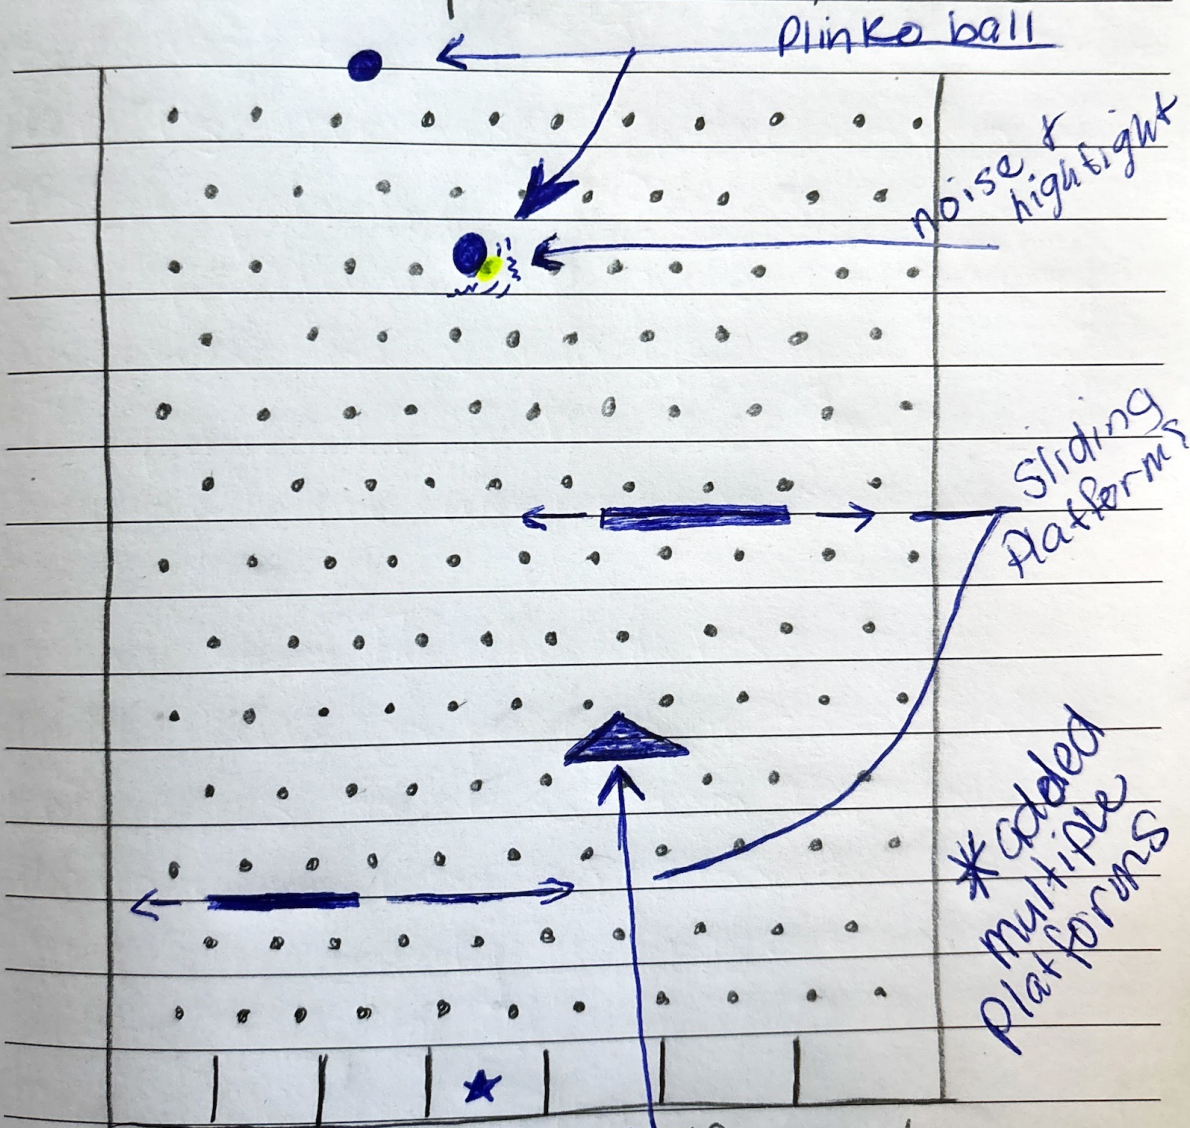 Plinko ball
noise &
highlight
Sliding
Platforms
* added
multiple
Platforms